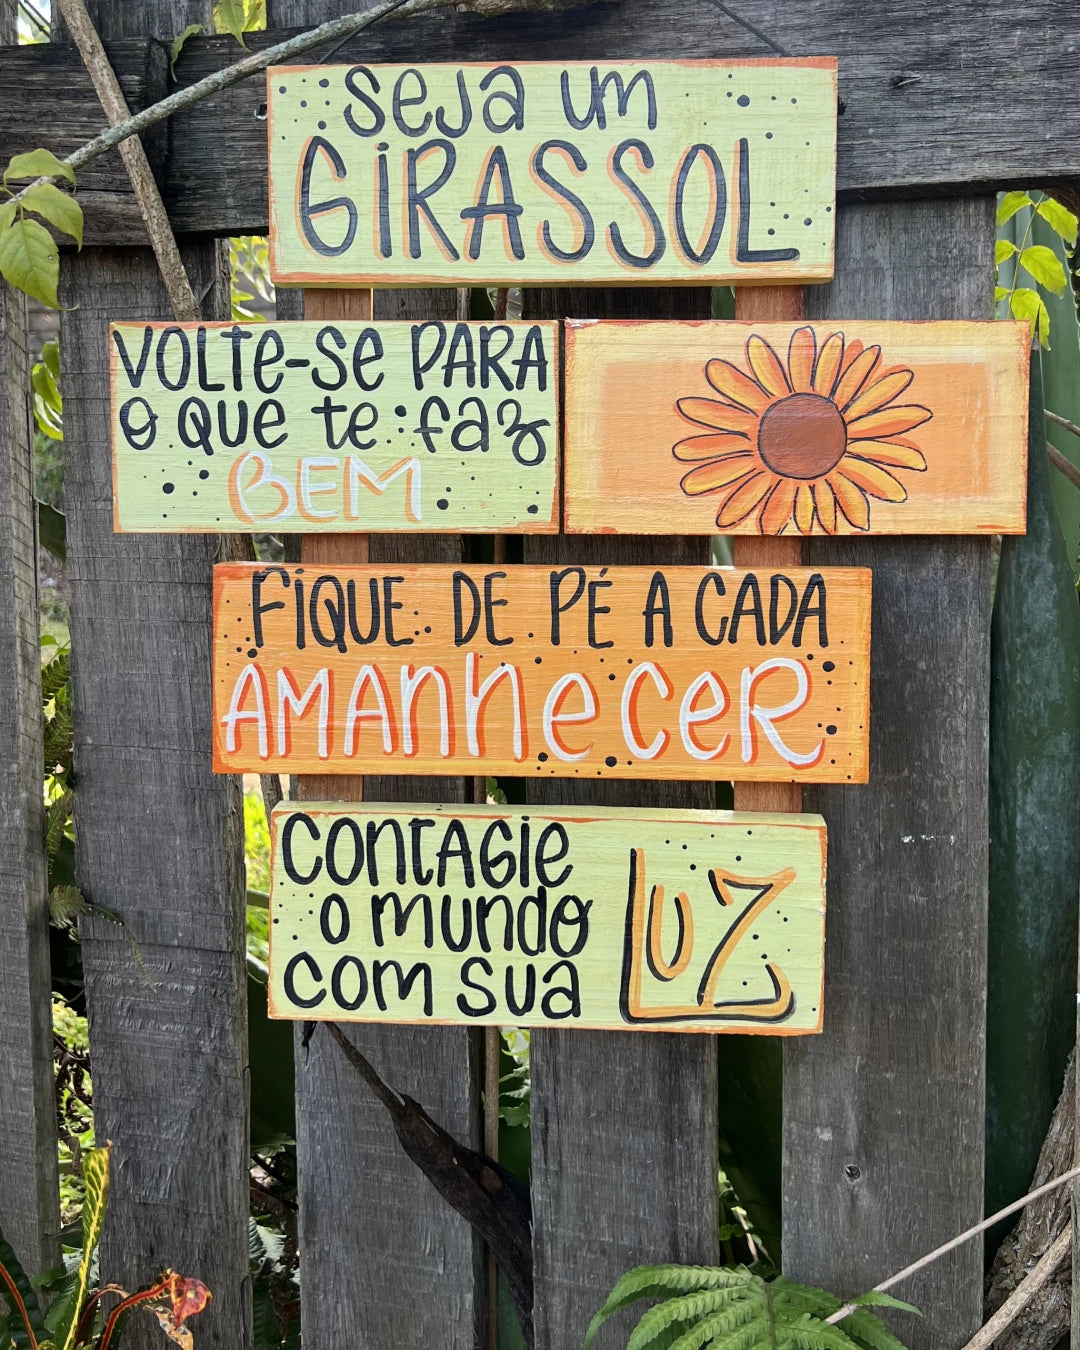 Seja um
GIRASSOL
VOLTE-Se PARA
o que te faz
BEM
FIQUE DE PÉ A CADA
AMANHECER
CONTAGIE
o mundo
com sua
LUZ